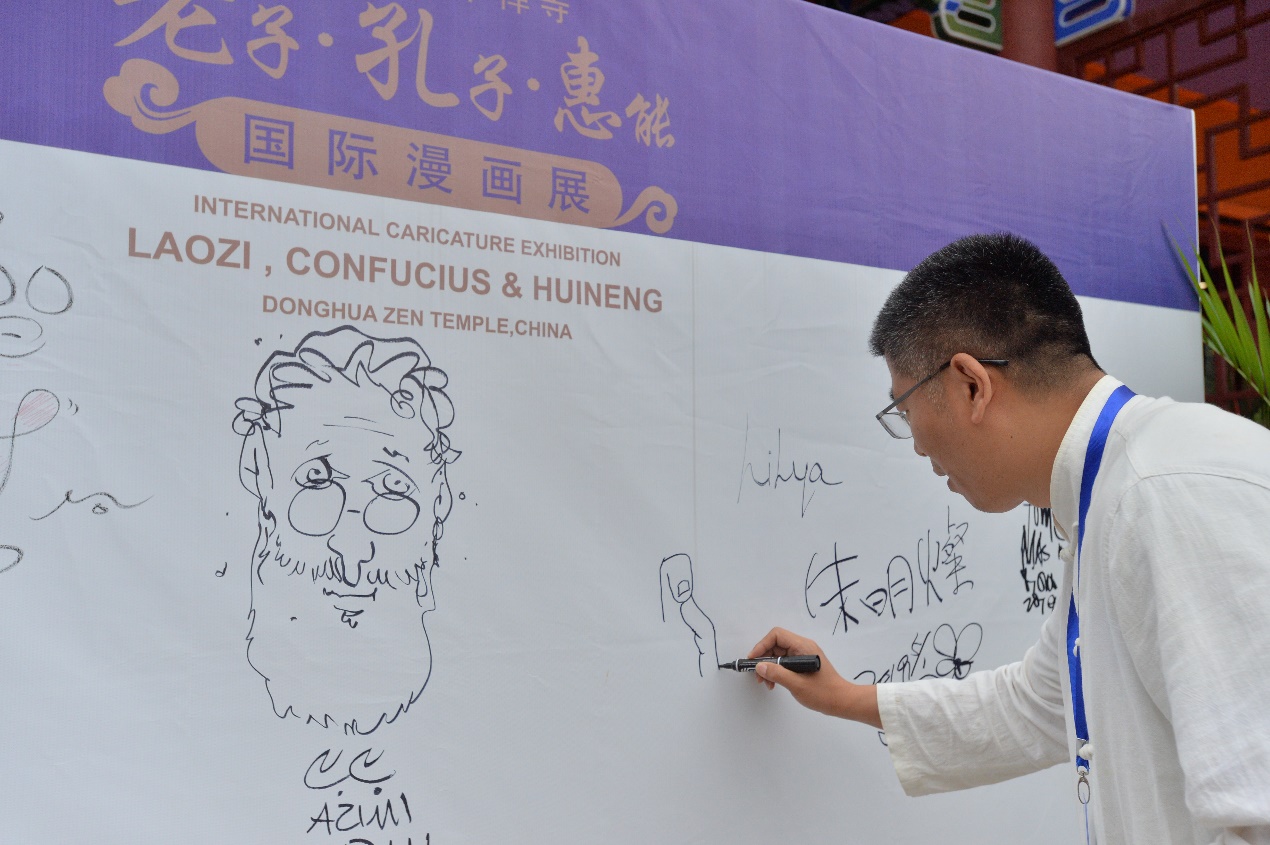 老子·孔子·惠能
国际漫画展
INTERNATIONAL CARICATURE EXHIBITION
LAOZI , CONFUCIUS & HUINENG
DONGHUA ZEN TEMPLE,CHINA
朱明灿
2019
AZIMI
MAS
2019